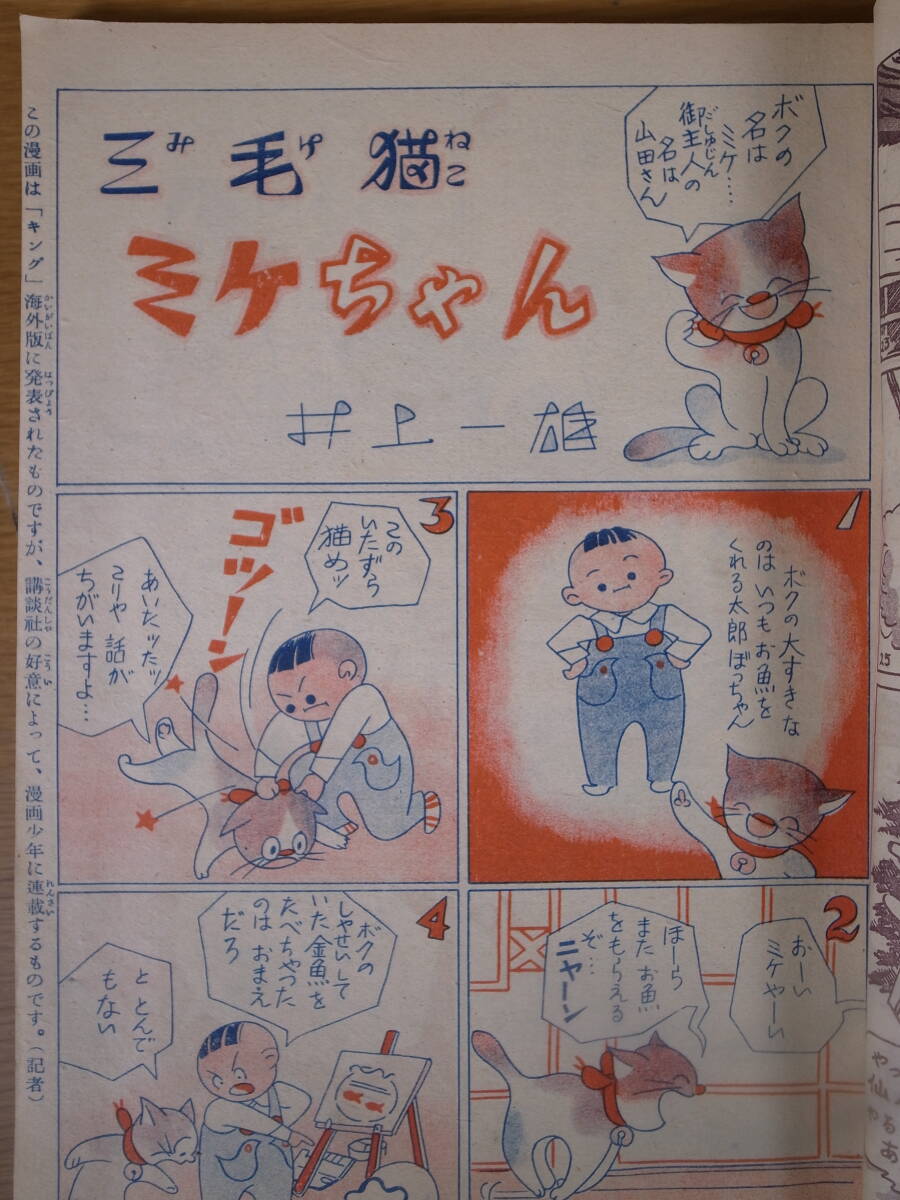 三毛猫
みけねこ
ミケちゃん
井上一雄
ボクの
名は
ミケ・・・・
御主人の
だしゅじん
名は
山田さん
1
ボクの大すきな
のは いつもお魚を
くれる太郎ぼっちゃん
2
おーい
ミケやーい
ほーら
また お魚
をもらえる
ぞ・・・
ニャーン
3
この
いたずら
猫めッ
ゴツーン
あいたッたッ
こりゃ 話が
ちがいますよ・・・
4
ボクの
しゃせいして
いた金魚を
たべちゃった
のは おまえ
だろ
と とんで
もない
この漫画は「キング」海外版に発表されたものですが、講談社の好意によって、漫画少年に連載するものです。(記者)
かいがいばん
はっぴょう
こうだんしゃ
こうい
れんさい
25